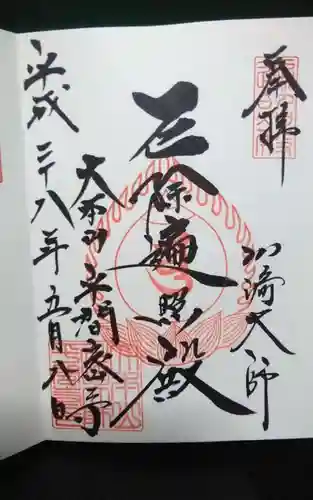 奉拝
川崎大師
厄除遍照殿
大本山平間密寺
平成二十八年五月八日